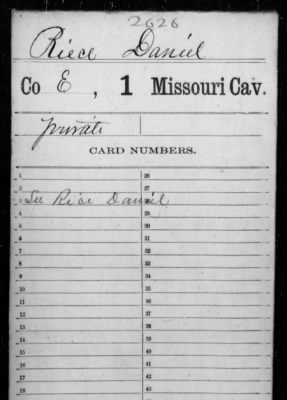 2626
Riece Daniel
Co E, 1 Missouri Cav.
private
CARD NUMBERS.
1 26
2 27
3 See Rice Daniel 28
4 29
5 30
6 31
7 32
8 33
9 34
10 35
11 36
12 37
13 38
14 39
15 40
16 41
17 42
18 43